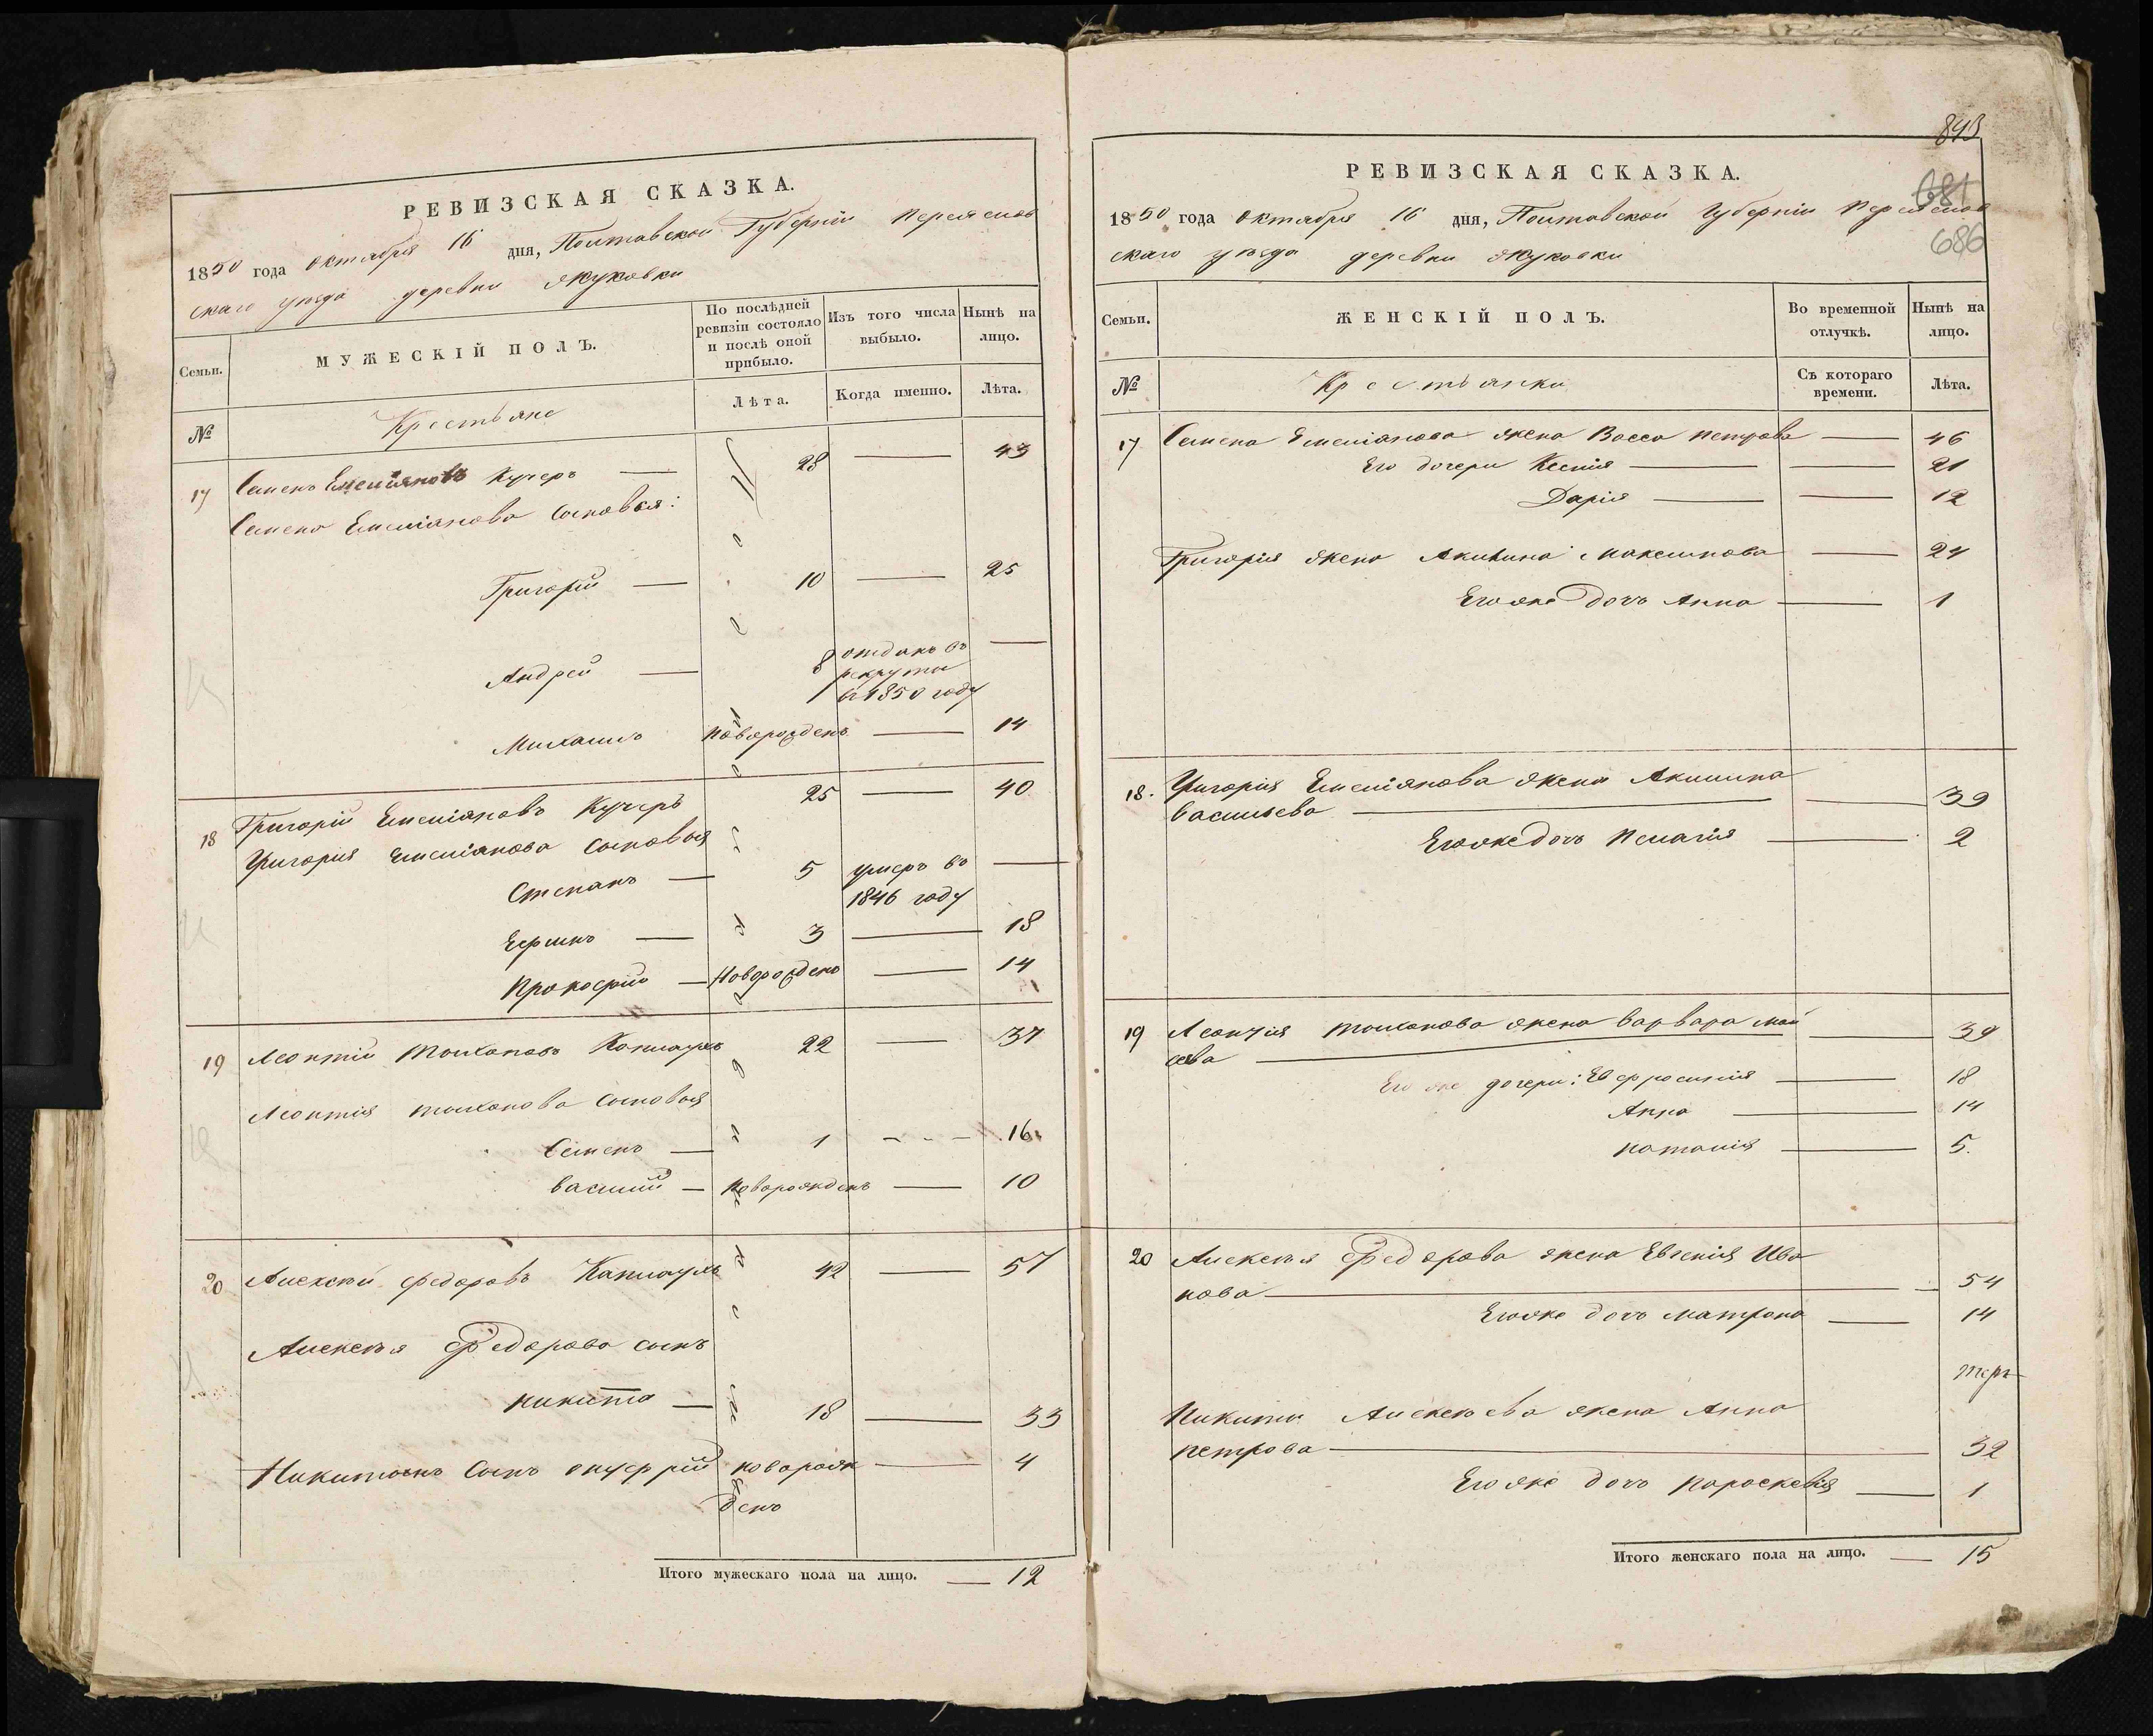 РЕВИЗСКАЯ СКАЗКА.
1850 года октября 16 дня, Полтавской Губерніи Переяслов
скаго уѣзда деревни Жуковки
Семьи.
МУЖЕСКІЙ ПОЛЪ.
По послѣдней
ревизіи состояло
и послѣ оной
прибыло.
Изъ того числа
выбыло.
Нынѣ на
лицо.
№
Крестьяне
Лѣта.
Когда именно.
Лѣта.
17 Семенъ Емеліяновъ Кучеръ — 28 — 43
Семена Емеліянова сыновья:
Григорій — 10 — 25
Андрей — 8 отданъ въ —
рекруты
въ 1850 году
Михаилъ новорожденъ — 14
18 Григорій Емеліяновъ Кучеръ 25 — 40
Григорія Емеліянова сыновья
Степанъ — 5 умеръ въ —
1846 году
Ефимъ — 3 — 18
Прокофій — Новорожденъ — 14
19 Леонтій Толкановъ 22 — 37
Леонтія Толканова сыновья
Семенъ — 1 - - - 16
Василій — новорожденъ — 10
20 Алексѣй Федоровъ 42 — 57
Алексѣя Федорова сынъ
Никита — 18 — 33
Никитынъ сынъ Онуфрій новорож — 4
денъ
Итого мужескаго пола на лицо. — 12
843
681
686
РЕВИЗСКАЯ СКАЗКА.
1850 года октября 16 дня, Полтавской Губерніи Переяслов
скаго уѣзда деревни Жуковки
Семьи.
ЖЕНСКІЙ ПОЛЪ.
Во временной
отлучкѣ.
Нынѣ на
лицо.
№
Крестьянки
Съ котораго
времени.
Лѣта.
17 Семена Емеліянова жена Васса Петрова — 46
Его дочери Ксенія — — 21
Дарія — — 12
Григорія жена Акилина Максимова — 24
Его же дочь Анна — 1
18. Григорія Емеліянова жена Акилина
Васильева — — 39
Его же дочь Пелагія — 2
19 Леонтія Толканова жена Варвара Мой
сеева — — 39
Его же дочери: Евфросинія — 18
Анна — 14
Наталія — 5.
20 Алексѣя Федорова жена Евгенія Ива
нова — — 54
Его же дочь Матрона — 14
Никиты Алексѣева жена Анна
Петрова — 32
Его же дочь Параскевія — 1
Итого женскаго пола на лицо. — 15